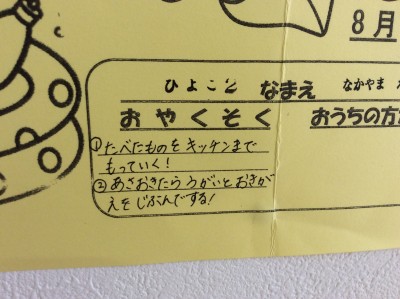 8月
ひよこ2 なまえ なかやま
おやくそく おうちの方
①たべたものをキッチンまで
もっていく!
②あさおきたらうがいとおきが
えをじぶんでする!